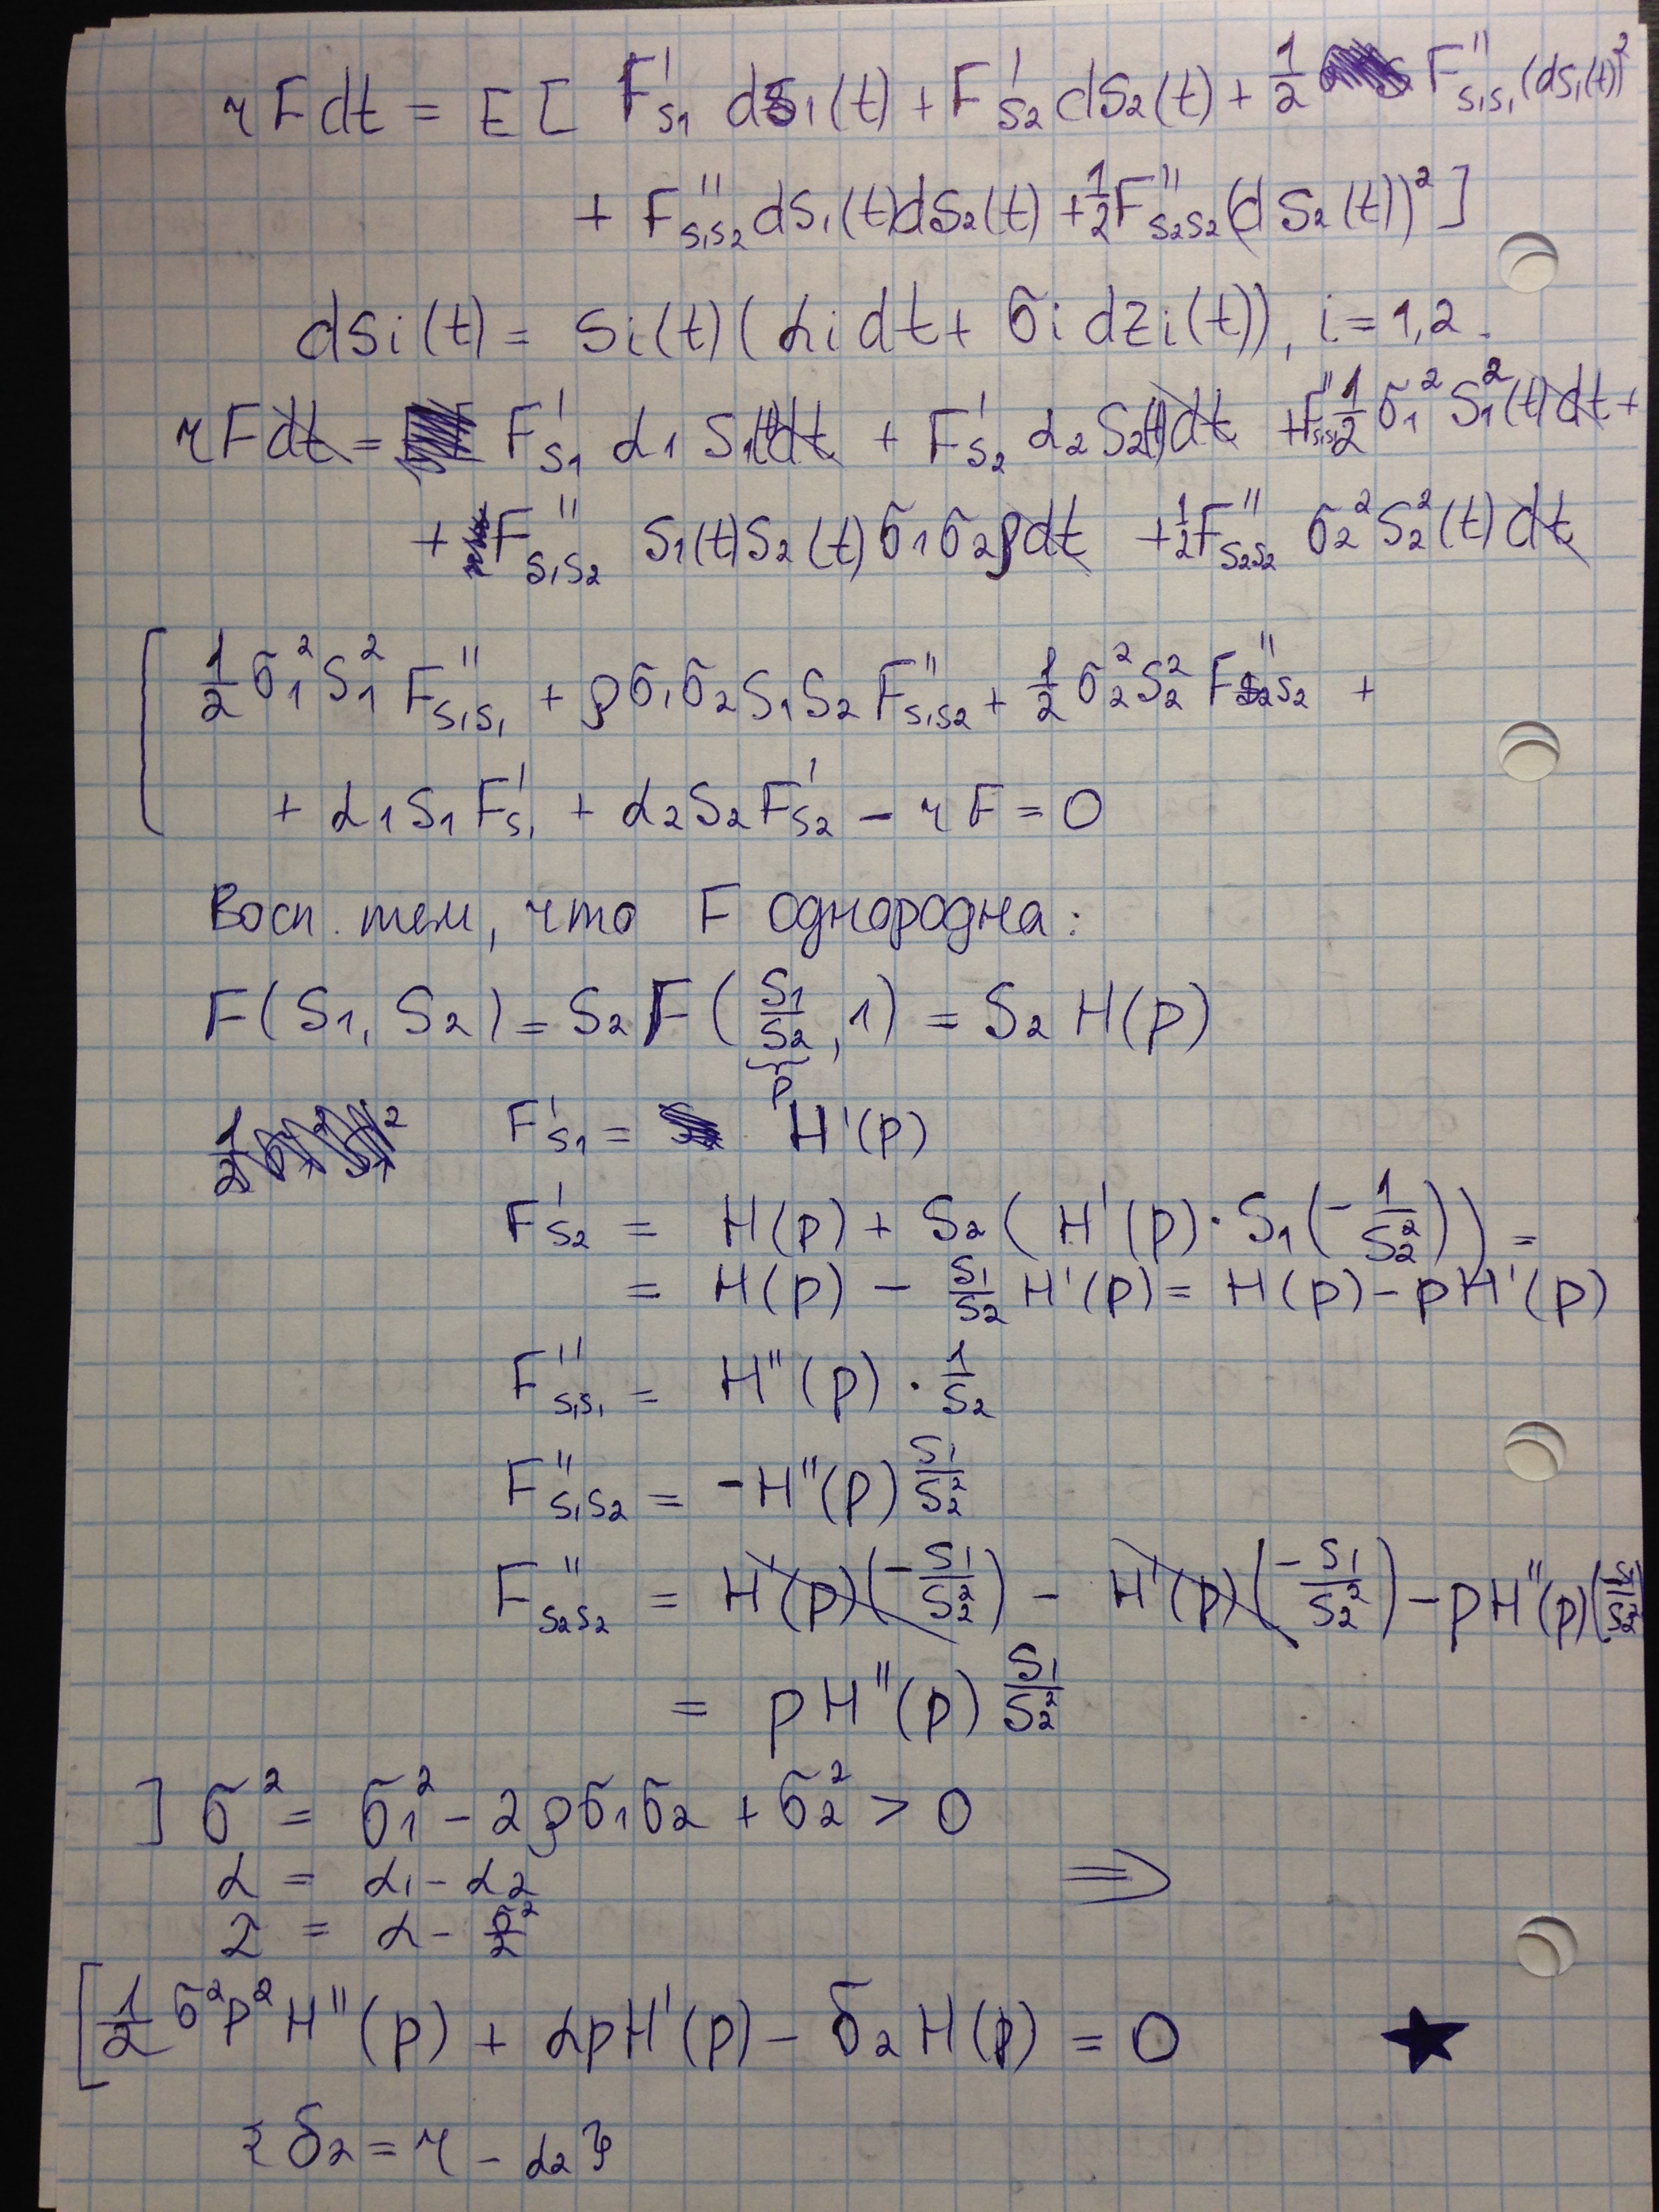 rFdt = E[ F'_{S_1} dS_1(t) + F'_{S_2} dS_2(t) + \frac{1}{2} F''_{S_1S_1} (dS_1(t))^2
+ F''_{S_1S_2} dS_1(t)dS_2(t) + \frac{1}{2} F''_{S_2S_2} (dS_2(t))^2 ]
dS_i(t) = S_i(t)(α_i dt + σ_i dz_i(t)), i = 1,2.
rFdt = F'_{S_1} α_1 S_1(t)dt + F'_{S_2} α_2 S_2(t)dt + F''_{S_1S_1} \frac{1}{2} σ_1^2 S_1^2(t)dt +
+ F''_{S_1S_2} S_1(t)S_2(t)σ_1σ_2ρdt + \frac{1}{2} F''_{S_2S_2} σ_2^2 S_2^2(t)dt
[ \frac{1}{2} σ_1^2 S_1^2 F''_{S_1S_1} + ρσ_1σ_2S_1S_2 F''_{S_1S_2} + \frac{1}{2} σ_2^2 S_2^2 F''_{S_2S_2} +
+ α_1S_1F'_{S_1} + α_2S_2F'_{S_2} - rF = 0
Восп. тем, что F однородна:
F(S_1, S_2) = S_2 F(\frac{S_1}{S_2}, 1) = S_2 H(p)
p
F'_{S_1} = H'(p)
F'_{S_2} = H(p) + S_2 ( H'(p) · S_1 (-\frac{1}{S_2^2}) ) =
= H(p) - \frac{S_1}{S_2} H'(p) = H(p) - pH'(p)
F''_{S_1S_1} = H''(p) · \frac{1}{S_2}
F''_{S_1S_2} = -H''(p) \frac{S_1}{S_2^2}
F''_{S_2S_2} = H'(p)(-\frac{S_1}{S_2^2}) - H'(p)(-\frac{S_1}{S_2^2}) - pH''(p)(
= pH''(p) \frac{S_1}{S_2^2}
] σ^2 = σ_1^2 - 2ρσ_1σ_2 + σ_2^2 > 0
α = α_1 - α_2 ⇒
= α - \frac{σ^2}{2}
[ \frac{1}{2} σ^2p^2H''(p) + αpH'(p) - δ_2H(p) = 0 ★
{ δ_2 = r - α_2 }